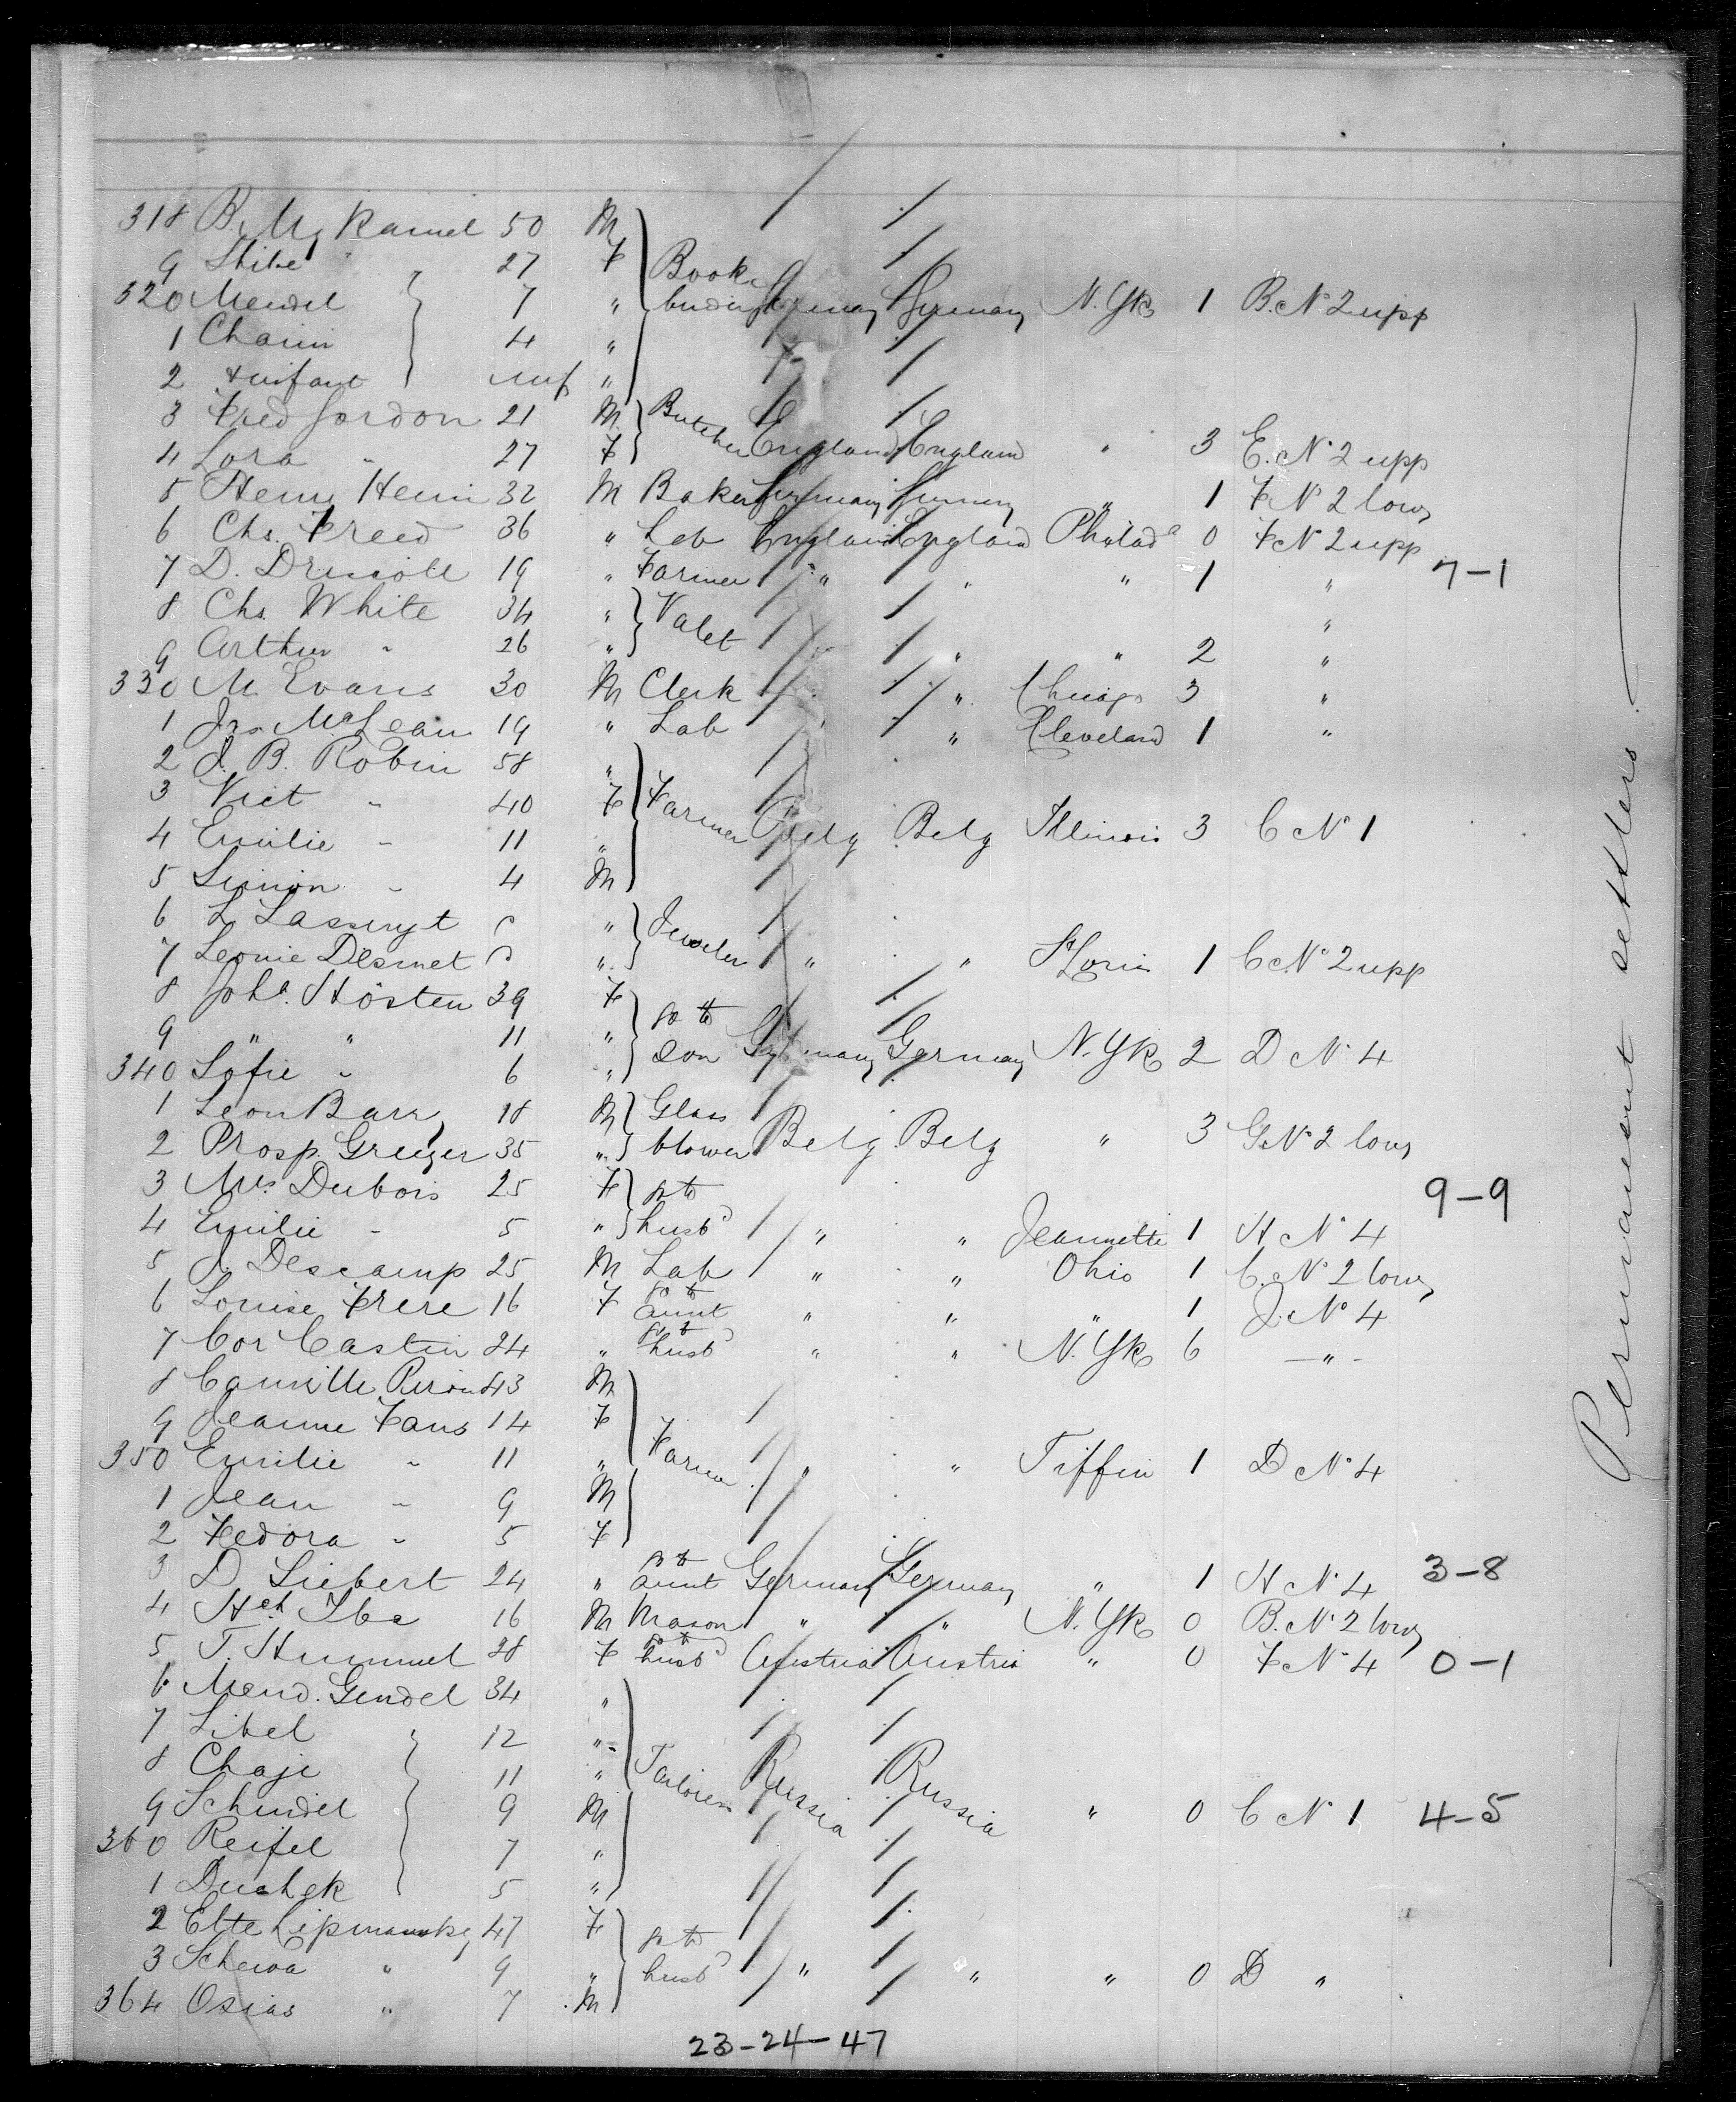 318 B. My Kamiel 50 M
9 Shibe " " 27 F Book
320 Mendel 7 " binder Germany Germany N. Yk 1 B. No 2 upp
1 Chaim 4 "
2 & infant inf "
3 Fred Gordon 21 M Butcher
4 Lora " 27 F England England " 3 E. No 2 upp
5 Henry Henri 32 M Baker Germany Germany " 1 F No 2 low
6 Chs. Freed 36 " Lab England England Philada 0 F No 2 upp
7 D. Driscoll 19 " Farmer " " " 1 " 7-1
8 Chs. White 34 " Valet "
9 Arthur " 26 " " " 2 "
330 M. Evans 30 M Clerk " Chicago 3 "
1 Jas. McLean 19 " Lab " " Cleveland 1 "
2 J. B. Robin 58 "
3 Vict " 40 F Farmer
4 Emilie " 11 " Belg Belg Illinois 3 C No 1
5 Simon " 4 M
6 L. "
7 Leonie Desmet " Jeweler " " St Louis 1 C No 2 upp
8 Joha. Hösten 39 F go to
9 " " 11 " son Germany Germany N. Yk 2 D No 4
340 Sofie " 6 "
1 Leon Barr 18 M Glass
2 Prosp. Greuzer 35 " blower Belg. Belg " 3 G No 2 low
3 Mrs. Dubois 25 F go to 9-9
4 Emilie " 5 " husbd " " Jeannette 1 H No 4
5 J. Descamp 25 M Lab " " Ohio 1 C. No 2 low
6 Louise Frere 16 F go to aunt " " " 1 J. No 4
7 Cor Castin 24 " go to husbd " " N. Yk 6 — " -
8 Camille Piron 43 M
9 Jeanne Fans 14 F Farmer
350 Emilie " 11 " " " Tiffin 1 D No 4
1 Jean " 9 M
2 Fedora " 5 F
3 D Siebert 24 " go to aunt Germany Germany " 1 H No 4 3-8
4 Hch. Ibe 16 M Mason " " N. Yk 0 B. No 2 low
5 T. Hummel 28 F go to husbd Austria Austria " 0 F No 4 0-1
6 Mend. Gendel 34 "
7 Libel 12 "
8 Chaje 11 " Tailoress Russia Russia
9 Schmidel 9 M " 0 C No 1 4-5
360 Reifel 7 "
1 5 "
2 Elte Lipmansky 47 F go to
3 Schewa " 9 " husbd " " " 0 D "
364 Osias " 7 M
23-24-47
Permanent settlers